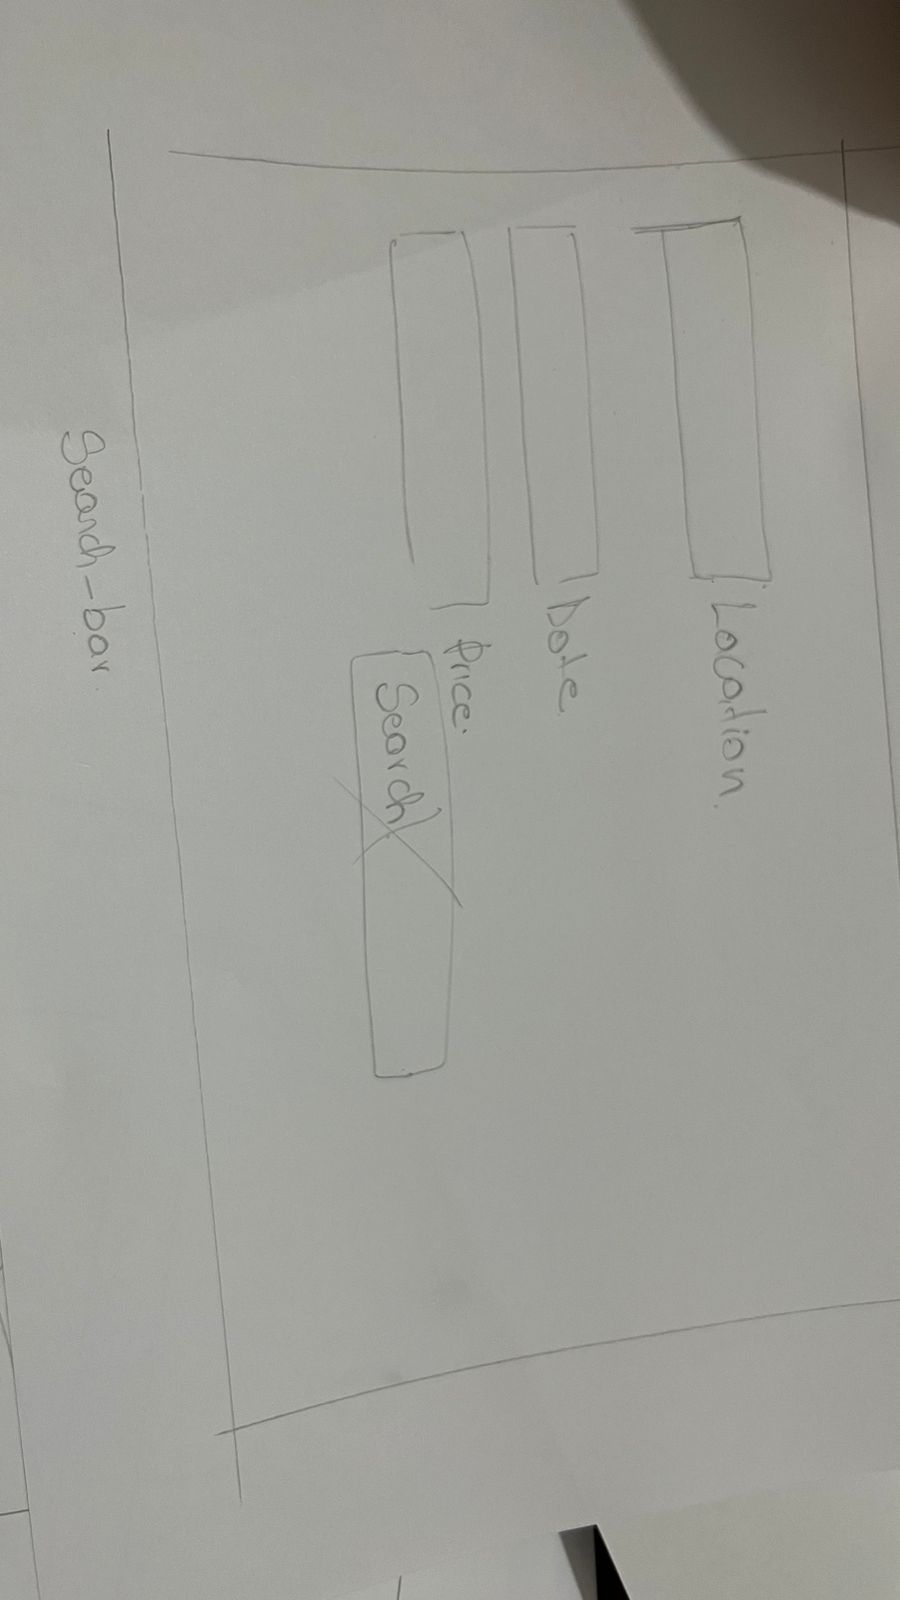 Location.
Date
Price.
Search
Search-bar.